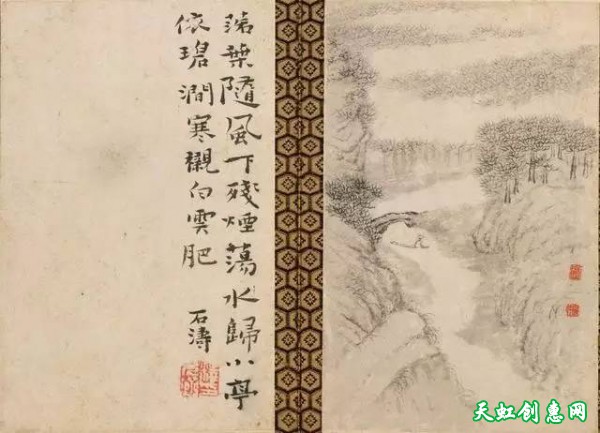 落葉隨風下殘煙蕩水歸小亭
依碧澗寒襯白雲肥
石濤
天虹创惠网